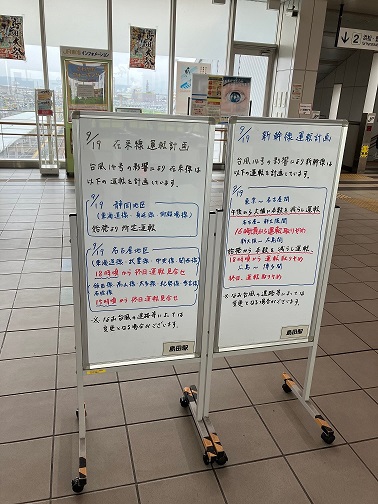 9/19 在来線運転計画
台風14号の影響により在来線は
以下の運転を計画しています。
9/19 静岡地区
(東海道線・身延線・御殿場線)
始発より所定運転
9/19 名古屋地区
(東海道線・武豊線・中央線・関西線)
18時頃から終日運転見合せ
飯田線・高山線・太多線・紀勢線・参宮線
名松線
15時頃から終日運転見合せ
※なお台風の進路等によっては
変更となる場合がございます。
島田駅
9/19 新幹線運転計画
台風14号の影響により新幹線は
以下の運転を計画しています。
9/19
東京〜名古屋間
午後から大幅に本数を減らし運転
名古屋〜新大阪間
16時頃から運転取りやめ
新大阪〜広島間
始発から本数を減らし運転
広島〜博多間
終日、運転取りやめ
※なお台風の進路等によっては
変更となる場合がございます。
島田駅
インフォメーション
2